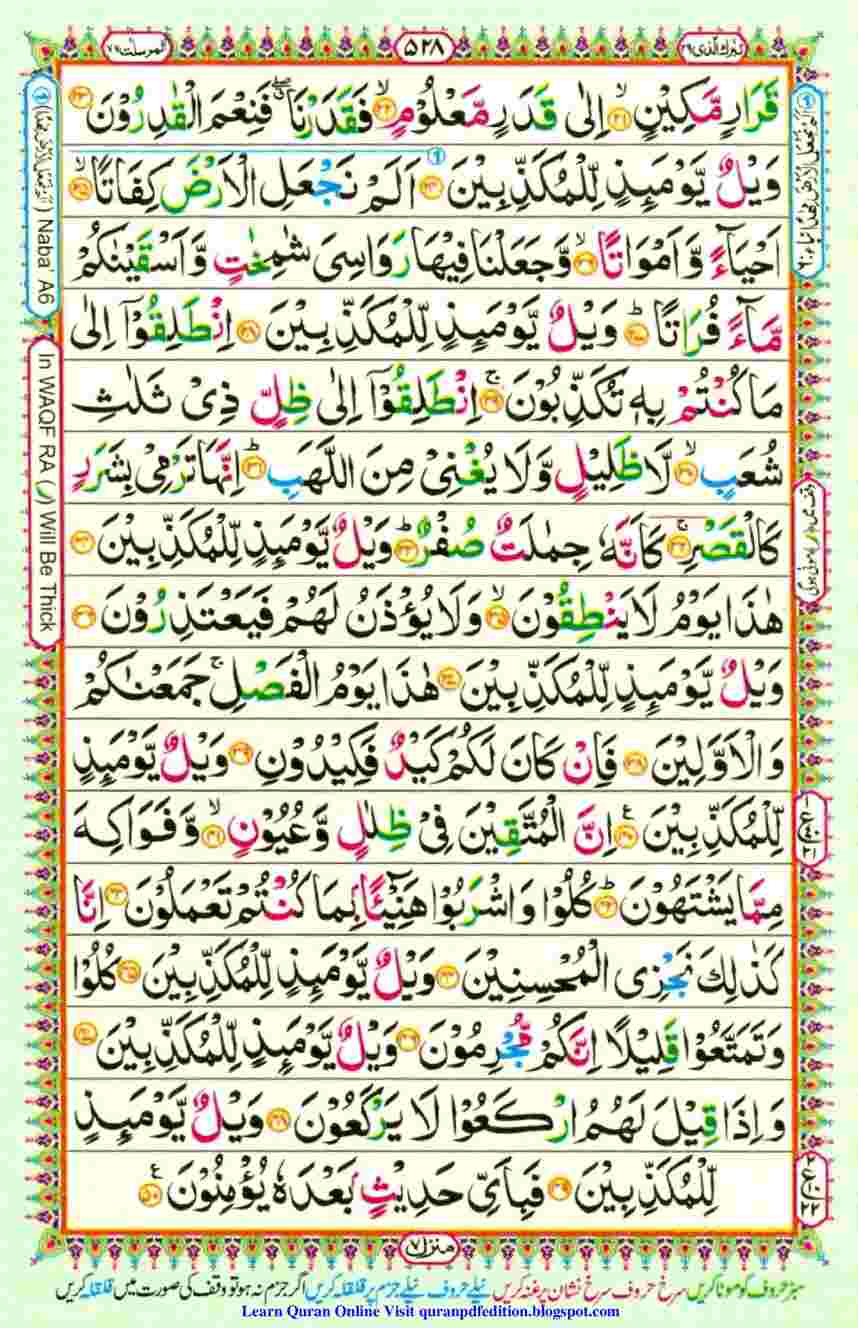 تبرك الذی ٢٩
٥٢٨
المرسلت ٧٧
قَرَارٍ مَّكِیْنٍ ۙ﴿۲۱﴾ اِلٰی قَدَرٍ مَّعْلُوْمٍ ۙ﴿۲۲﴾ فَقَدَرْنَا ۖۗ فَنِعْمَ الْقٰدِرُوْنَ ﴿۲۳﴾
وَیْلٌ یَّوْمَىِٕذٍ لِّلْمُكَذِّبِیْنَ ﴿۲۴﴾ اَلَمْ نَجْعَلِ الْاَرْضَ كِفَاتًا ۙ﴿۲۵﴾
اَحْیَآءً وَّ اَمْوَاتًا ۙ﴿۲۶﴾ وَّ جَعَلْنَا فِیْهَا رَوَاسِیَ شٰمِخٰتٍ وَّ اَسْقَیْنٰكُمْ
مَّآءً فُرَاتًا ؕ﴿۲۷﴾ وَیْلٌ یَّوْمَىِٕذٍ لِّلْمُكَذِّبِیْنَ ﴿۲۸﴾ اِنْطَلِقُوْۤا اِلٰی
مَا كُنْتُمْ بِهٖ تُكَذِّبُوْنَ ۚ﴿۲۹﴾ اِنْطَلِقُوْۤا اِلٰی ظِلٍّ ذِیْ ثَلٰثِ
شُعَبٍ ۙ﴿۳۰﴾ لَّا ظَلِیْلٍ وَّ لَا یُغْنِیْ مِنَ اللَّهَبِ ؕ﴿۳۱﴾ اِنَّهَا تَرْمِیْ بِشَرَرٍ
كَالْقَصْرِ ۚ﴿۳۲﴾ كَاَنَّهٗ جِمٰلَتٌ صُفْرٌ ؕ﴿۳۳﴾ وَیْلٌ یَّوْمَىِٕذٍ لِّلْمُكَذِّبِیْنَ ﴿۳۴﴾
هٰذَا یَوْمُ لَا یَنْطِقُوْنَ ۙ﴿۳۵﴾ وَ لَا یُؤْذَنُ لَهُمْ فَیَعْتَذِرُوْنَ ﴿۳۶﴾
وَیْلٌ یَّوْمَىِٕذٍ لِّلْمُكَذِّبِیْنَ ﴿۳۷﴾ هٰذَا یَوْمُ الْفَصْلِ ۚ جَمَعْنٰكُمْ
وَ الْاَوَّلِیْنَ ﴿۳۸﴾ فَاِنْ كَانَ لَكُمْ كَیْدٌ فَكِیْدُوْنِ ﴿۳۹﴾ وَیْلٌ یَّوْمَىِٕذٍ
لِّلْمُكَذِّبِیْنَ ﴿۴۰﴾ ع اِنَّ الْمُتَّقِیْنَ فِیْ ظِلٰلٍ وَّ عُیُوْنٍ ۙ﴿۴۱﴾ وَّ فَوَاكِهَ
مِمَّا یَشْتَهُوْنَ ؕ﴿۴۲﴾ كُلُوْا وَ اشْرَبُوْا هَنِیْٓـًٔۢا بِمَا كُنْتُمْ تَعْمَلُوْنَ ﴿۴۳﴾ اِنَّا
كَذٰلِكَ نَجْزِی الْمُحْسِنِیْنَ ﴿۴۴﴾ وَیْلٌ یَّوْمَىِٕذٍ لِّلْمُكَذِّبِیْنَ ﴿۴۵﴾ كُلُوْا
وَ تَمَتَّعُوْا قَلِیْلًا اِنَّكُمْ مُّجْرِمُوْنَ ﴿۴۶﴾ وَیْلٌ یَّوْمَىِٕذٍ لِّلْمُكَذِّبِیْنَ ﴿۴۷﴾
وَ اِذَا قِیْلَ لَهُمُ ارْكَعُوْا لَا یَرْكَعُوْنَ ﴿۴۸﴾ وَیْلٌ یَّوْمَىِٕذٍ
لِّلْمُكَذِّبِیْنَ ﴿۴۹﴾ فَبِاَیِّ حَدِیْثٍۭ بَعْدَهٗ یُؤْمِنُوْنَ ﴿۵۰﴾ ع
Naba' A6
In WAQF RA (ر) Will Be Thick
منزل ٧
سبز حروف کو موٹا کریں سرخ حروف سرخ نشان پر غنہ کریں نیلے حروف نیلے جزم پر قلقلہ کریں اگر جزم نہ ہو تو وقف کی صورت میں قلقلہ کریں
Learn Quran Online Visit quranpdfedition.blogspot.com